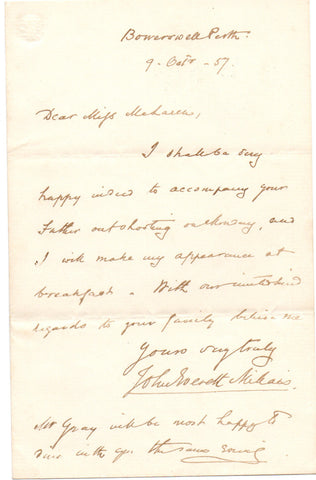 Bowerswell Perth.
9. Octr. - 57.
Dear Miss
I shall be very
happy indeed to accompany your
Father out shooting on Monday, and
I will make my appearance at
breakfast. With our united kind
regards to your family believe me
Yours very truly
John Everett Millais.
Mr Gray will be most happy to
dine with you the same Evening